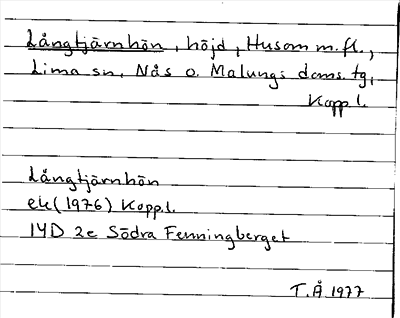 Långtjärnhön, höjd, Husom m.fl.,
Lima sn, Nås o. Malungs doms. tg,
Kopp.l.
Långtjärnhön
ek (1976) Kopp.l.
14D 2e Södra Fenningberget
T.Å 1977